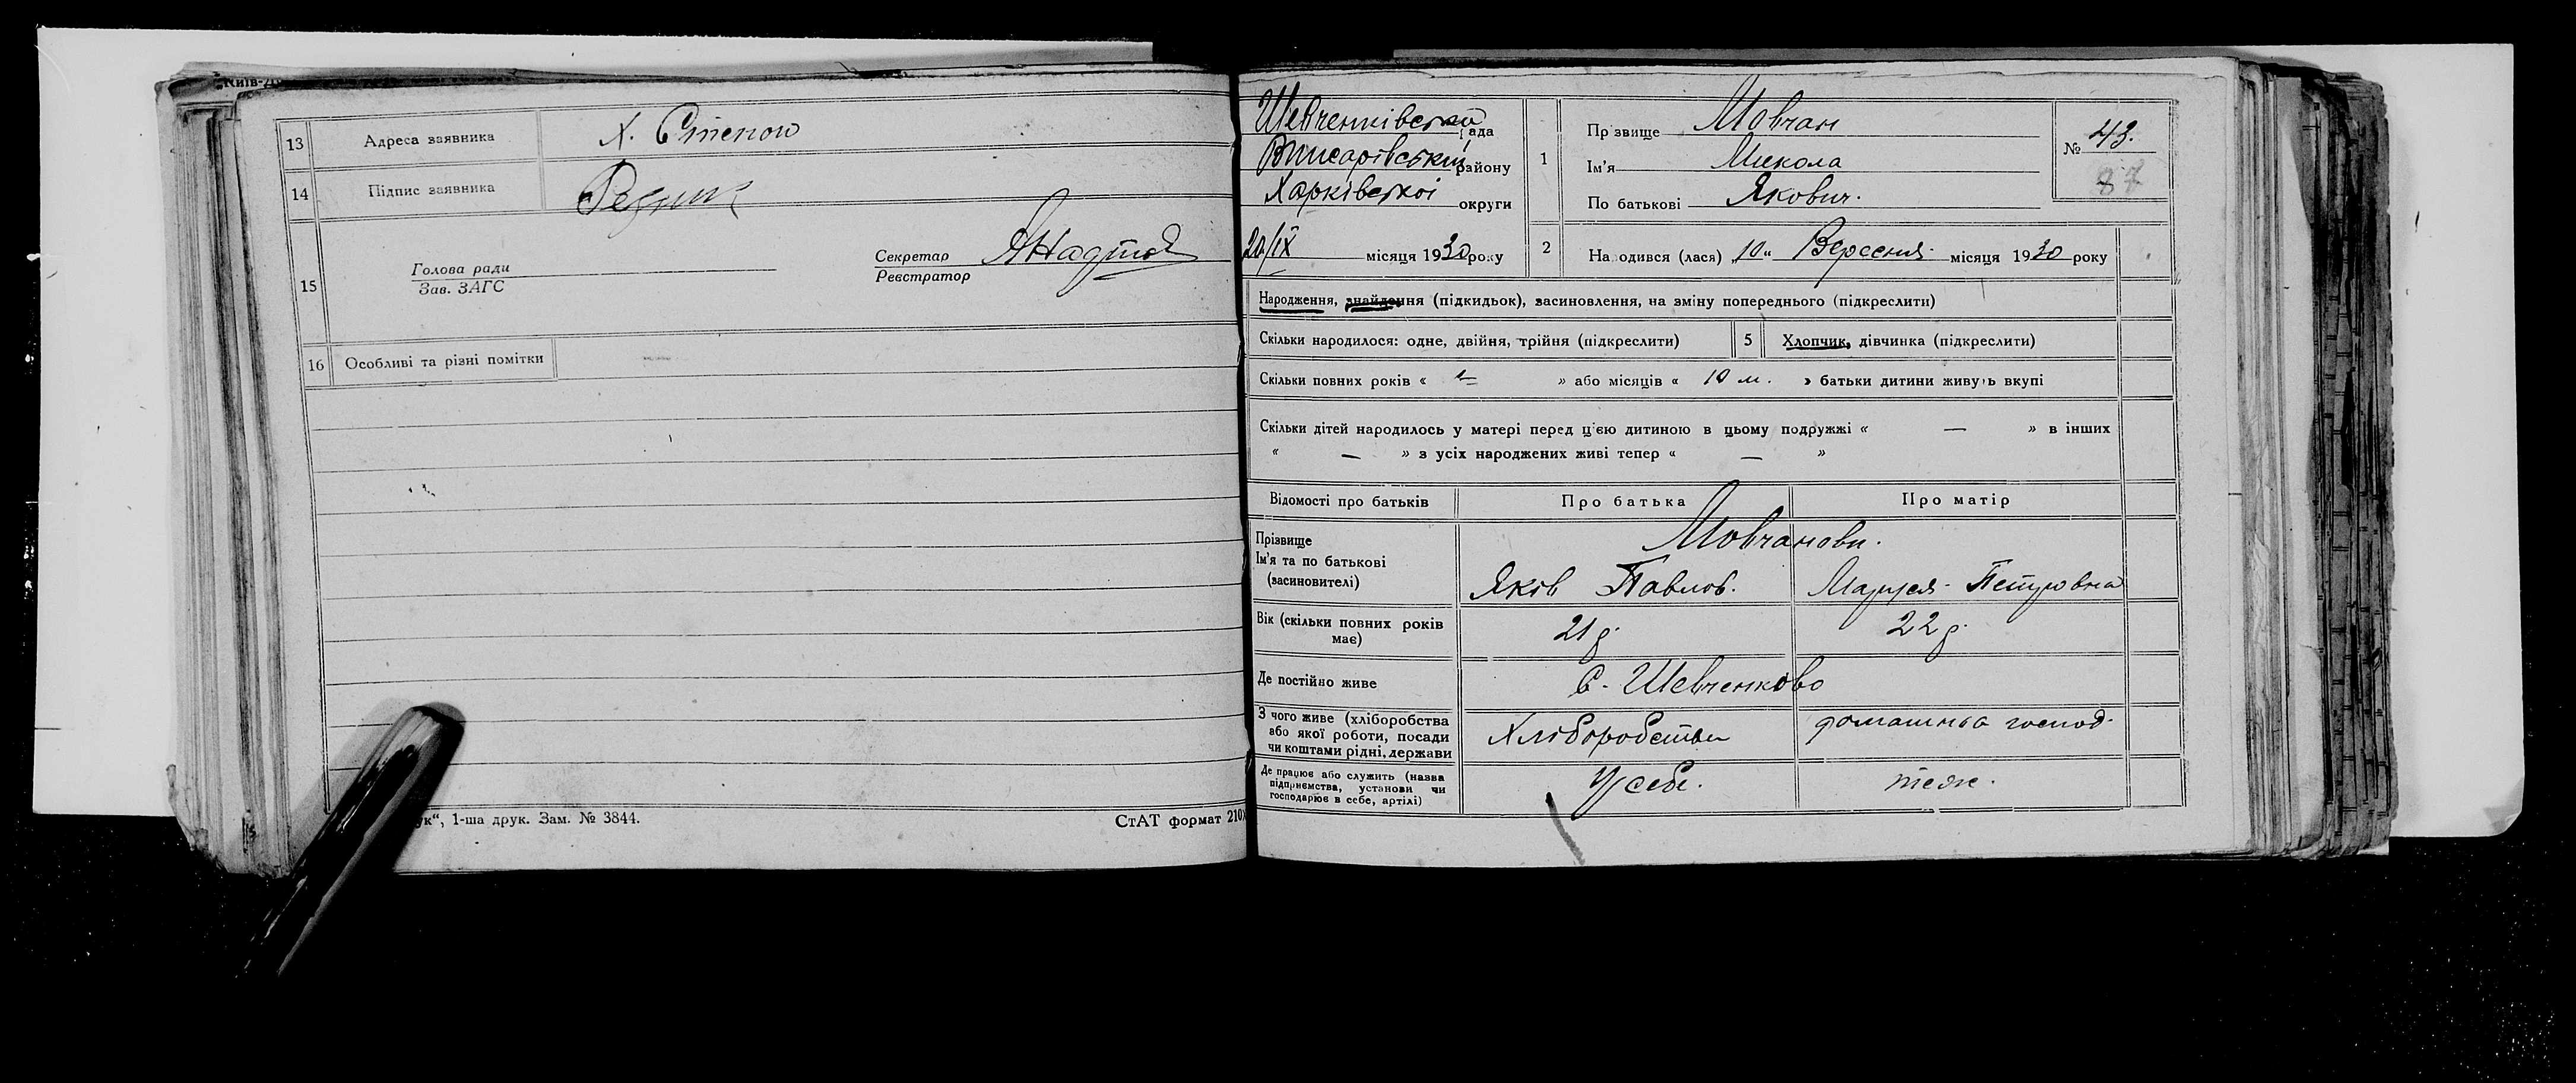 13 Адреса заявника Х. Степок
14 Підпис заявника
15 Голова ради
Зав. ЗАГС
Секретар
Реєстратор
16 Особливі та різні помітки
ук“, 1-ша друк. Зам. № 3844.
СтАТ формат 210
Шевченківська рада
району
Харківської округи
20/IX місяця 1930 року
1 Прізвище Мовчан
Ім'я Микола
По батькові Якович.
№ 43.
87
2 Народився (лася) „10“ Вересня місяця 1930 року
Народження, знайдення (підкидьок), засиновлення, на зміну попереднього (підкреслити)
Скільки народилося: одне, двійня, трійня (підкреслити) 5 Хлопчик, дівчинка (підкреслити)
Скільки повних років « — » або місяців « 10 м. » батьки дитини живуть вкупі
Скільки дітей народилось у матері перед цією дитиною в цьому подружжі « — » в інших
« — » з усіх народжених живі тепер « — »
Відомості про батьків Про батька Про матір
Прізвище
Ім'я та по батькові
(засиновителі)
Мовчанови.
Яків Павлов. Маруся Петровна
Вік (скільки повних років
має)
21 р. 22 р.
Де постійно живе С. Шевченково
З чого живе (хліборобства
або якої роботи, посади
чи коштами рідні, держави
Хліборобства домашньа господ.
Де працює або служить (назва
підприємства, установи чи
господарює в себе, артілі)
У себе. теж.